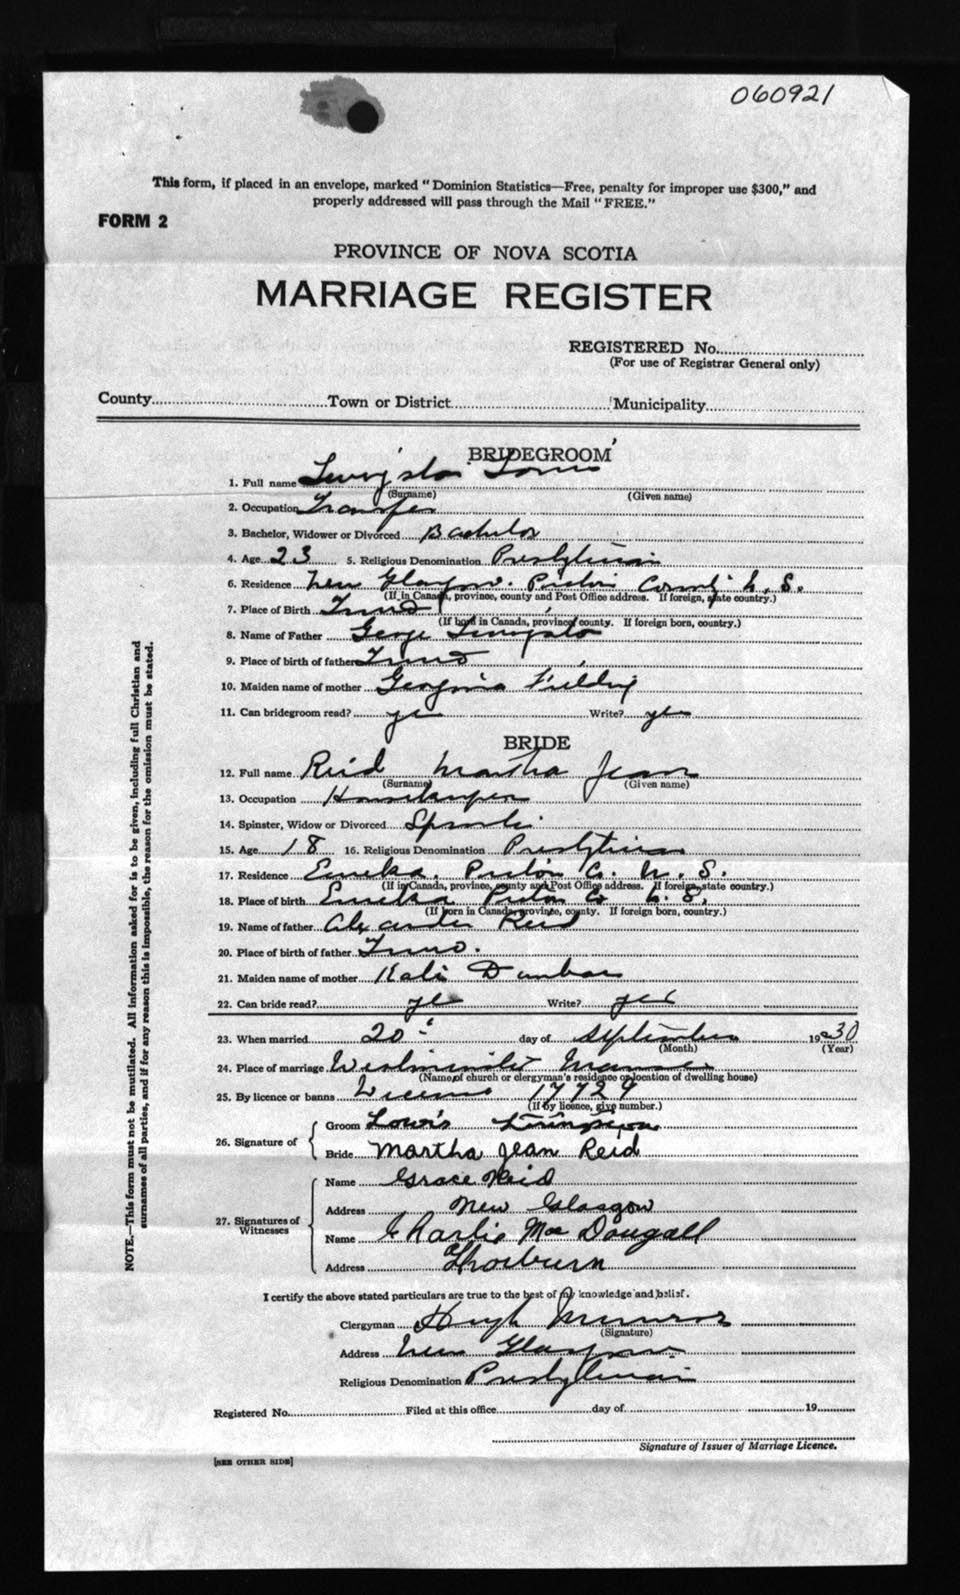 060921
This form, if placed in an envelope, marked "Dominion Statistics—Free, penalty for improper use $300," and
properly addressed will pass through the Mail "FREE."
FORM 2
PROVINCE OF NOVA SCOTIA
MARRIAGE REGISTER
REGISTERED No.
(For use of Registrar General only)
County Town or District Municipality
BRIDEGROOM
1. Full name
(Surname) (Given name)
2. Occupation Transfer
3. Bachelor, Widower or Divorced Bachelor
4. Age 23 5. Religious Denomination Presbyterian
6. Residence New Glasgow. Pictou County N. S.
(If in Canada, province, county and Post Office address. If foreign, state country.)
7. Place of Birth Truro
(If born in Canada, province, county. If foreign born, country.)
8. Name of Father George
9. Place of birth of father Truro
10. Maiden name of mother Georgina Fielding
11. Can bridegroom read? yes Write? yes
BRIDE
12. Full name Reid Martha Jean
(Surname) (Given name)
13. Occupation Housekeeper
14. Spinster, Widow or Divorced Spinster
15. Age 18 16. Religious Denomination Presbyterian
17. Residence Eureka, Pictou Co. N. S.
(If in Canada, province, county and Post Office address. If foreign, state country.)
18. Place of birth Eureka Pictou Co N. S.
(If born in Canada, province, county. If foreign born, country.)
19. Name of father Alexander Reid
20. Place of birth of father Truro.
21. Maiden name of mother Dunbar
22. Can bride read? yes Write? yes
23. When married 20 day of September 1930
(Month) (Year)
24. Place of marriage Westminster Manse
(Name of church or clergyman's residence or location of dwelling house)
25. By licence or banns License 17729
(If by licence, give number.)
26. Signature of
Groom Lowis
Bride Martha Jean Reid
27. Signatures of Witnesses
Name Grace Reid
Address New Glasgow
Name Charlie MacDougall
Address Thorburn
I certify the above stated particulars are true to the best of my knowledge and belief.
Clergyman Hugh Munroe
(Signature)
Address New Glasgow
Religious Denomination Presbyterian
Registered No. Filed at this office day of 19
Signature of Issuer of Marriage Licence.
[SEE OTHER SIDE]
NOTE.—This form must not be mutilated. All information asked for is to be given, including full Christian and
surnames of all parties, and if for any reason this is impossible, the reason for the omission must be stated.